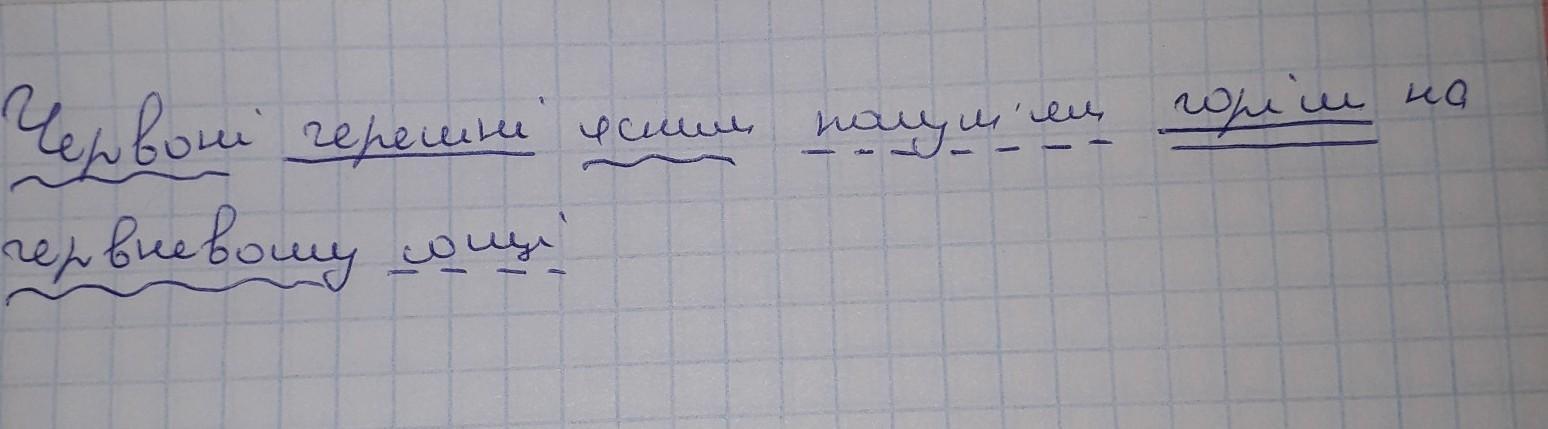 Червоні черешні ясним полум'ям горіли на
червневому сонці